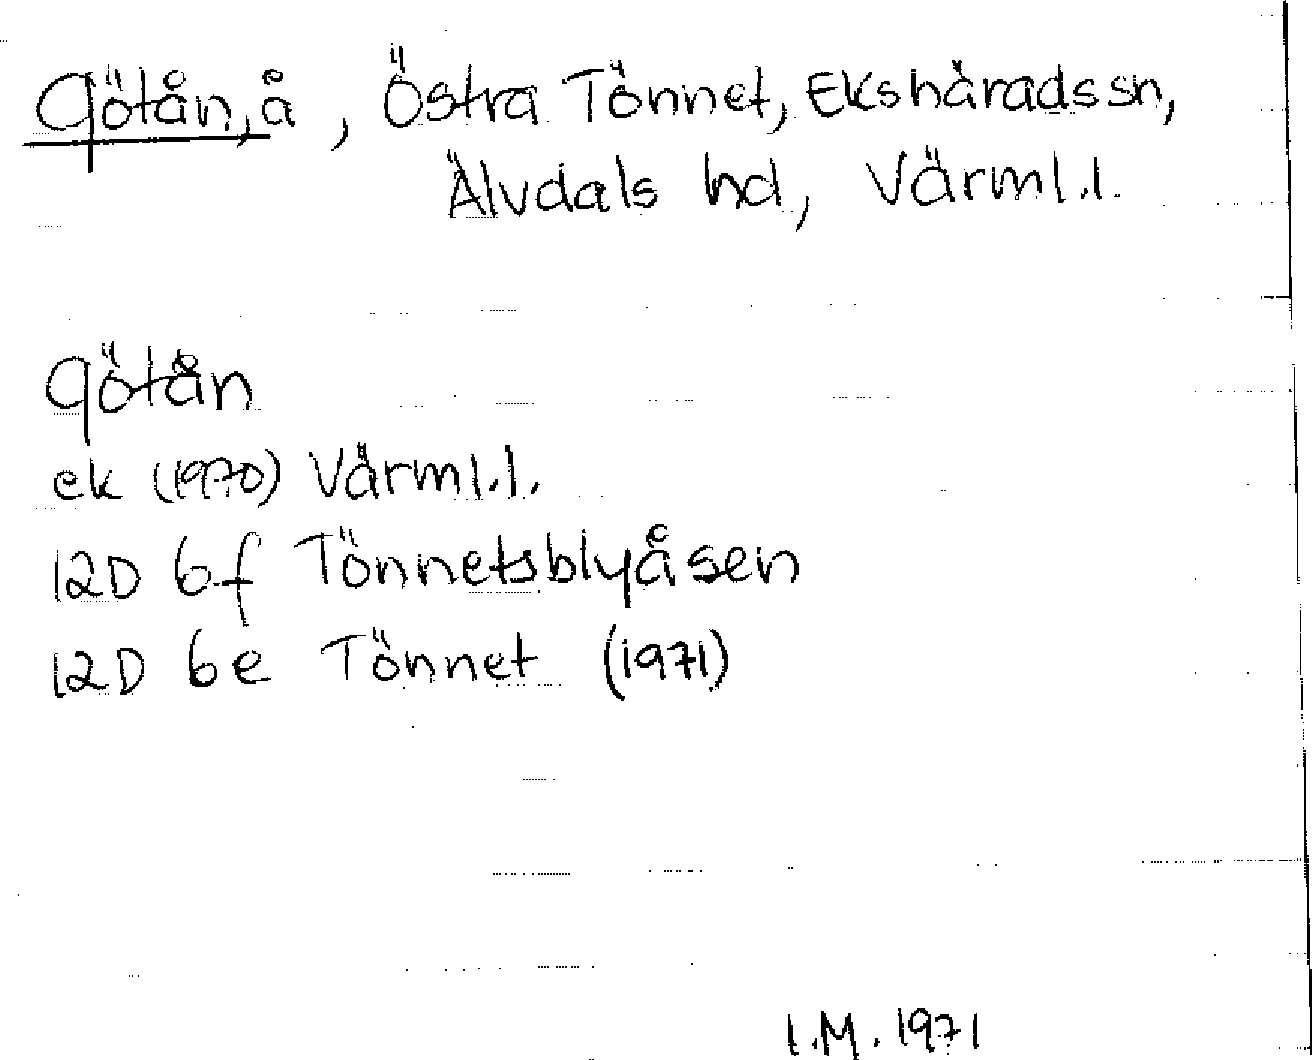 Götån, å, Östra Tönnet, Ekshärads sn,
Älvdals hd, Värml.l.
Götån
ek (1970) Värml.l.
12D 6f Tönnetsblyåsen
12D 6e Tönnet (1971)
I.M. 1971